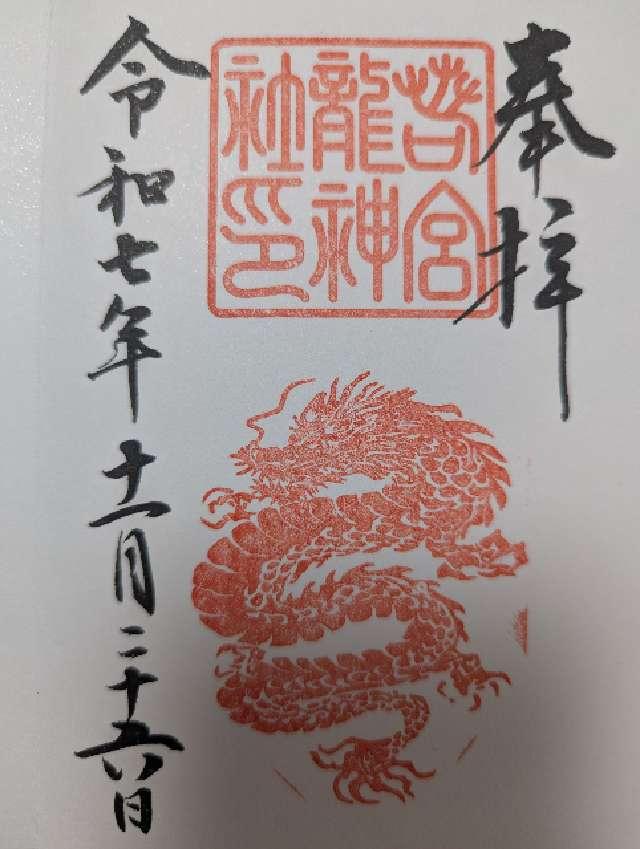 奉拝
若宮
龍神
社印
令和七年十一月二十六日